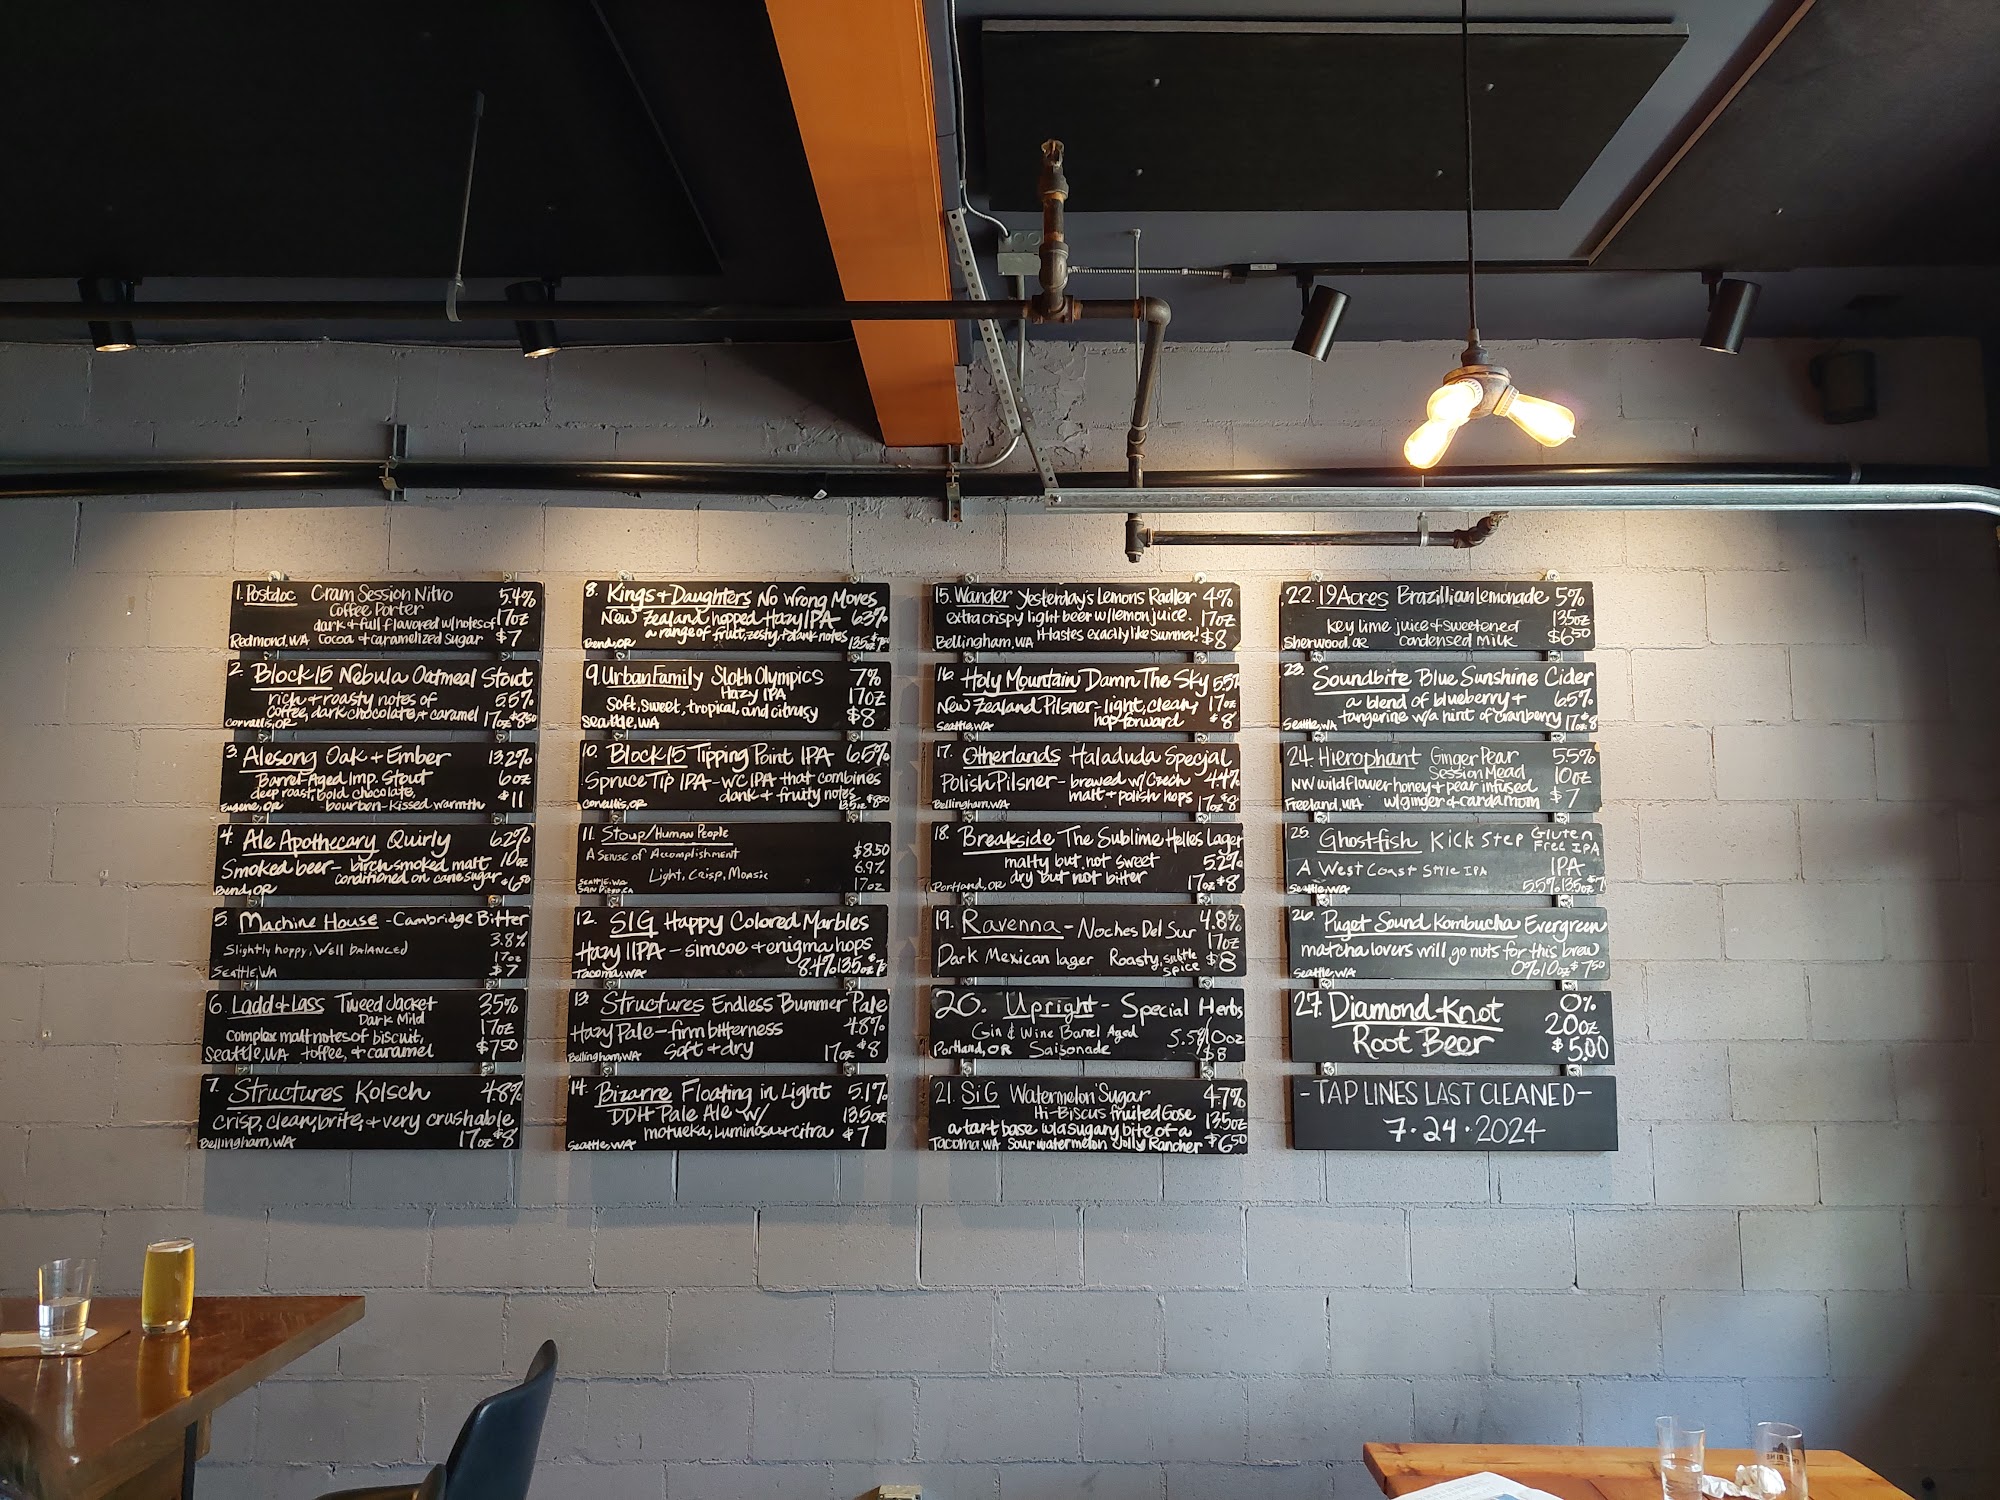 1. Postdoc Cram Session Nitro 5.4%
Coffee Porter 17oz
dark + full flavored w/notes of
Redmond, WA cocoa + caramelized sugar $7
2. Block 15 Nebula Oatmeal Stout
rich + roasty notes of 5.5%
coffee, dark chocolate, + caramel
Corvallis, OR 17oz $8.50
3. Alesong Oak + Ember 13.2%
Barrel-Aged Imp. Stout 6oz
deep roast, bold chocolate,
Eugene, OR bourbon-kissed warmth $11
4. Ale Apothecary Quirly 6.2%
Smoked beer - birch-smoked malt 10oz
conditioned on cane sugar
Bend, OR $6.50
5. Machine House - Cambridge Bitter
3.8%
Slightly hoppy, Well balanced 17oz
Seattle, WA $7
6. Ladd + Lass Tweed Jacket 3.5%
Dark Mild 17oz
complex malt notes of biscuit,
Seattle, WA toffee, + caramel $7.50
7. Structures Kolsch 4.8%
crisp, clean, brite, + very crushable
Bellingham, WA 17oz $8
8. Kings + Daughters No Wrong Moves
New Zealand hopped Hazy IPA 6.3%
a range of fruit, zesty, + dank notes
Bend, OR 13.5oz
9. Urban Family Sloth Olympics 7%
Hazy IPA 17oz
Soft, sweet, tropical, and citrusy
Seattle, WA $8
10. Block 15 Tipping Point IPA 6.5%
Spruce Tip IPA - WC IPA that combines
dank + fruity notes
Corvallis, OR 13.5oz $8.50
11. Stoup/Human People
A Sense of Accomplishment $8.50
Light, Crisp, Mosaic 6.9%
Seattle, WA
San Diego, CA 17oz
12. SIG Happy Colored Marbles
Hazy IIPA - simcoe + enigma hops
Tacoma, WA 8.4% 13.5oz $7
13. Structures Endless Bummer Pale
Hazy Pale - firm bitterness 4.8%
soft + dry
Bellingham, WA 17oz $8
14. Bizarre Floating in Light 5.1%
DDH Pale Ale w/ 13.5oz
motueka, Luminosa + citra
Seattle, WA $7
15. Wander Yesterday's Lemons Radler 4%
extra crispy light beer w/lemon juice. 17oz
Bellingham, WA it tastes exactly like summer! $8
16. Holy Mountain Damn The Sky 5.5%
New Zealand Pilsner - light, clean, 17oz
Seattle, WA hop forward $8
17. Otherlands Haladuda Special
Polish Pilsner - brewed w/ Czech 4.4%
malt + polish hops
Bellingham, WA 17oz $8
18. Breakside The Sublime Helles Lager
malty but not sweet 5.2%
dry but not bitter
Portland, OR 17oz $8
19. Ravenna - Noches Del Sur 4.8%
17oz
Dark Mexican lager Roasty, subtle spice $8
20. Upright - Special Herbs
Gin & Wine Barrel Aged 5.5% 10oz
Portland, OR Saisonade $8
21. SiG Watermelon Sugar 4.7%
Hi-Biscus fruited Gose 13.5oz
a tart base w/a sugary bite of a
Tacoma, WA sour watermelon Jolly Rancher $6.50
22. 19 Acres Brazillian Lemonade 5%
key lime juice + sweetened 13.5oz
Sherwood, OR condensed milk $6.50
23. Soundbite Blue Sunshine Cider
a blend of blueberry + 6.5%
tangerine w/a hint of cranberry
Seattle, WA 17oz $8
24. Hierophant Ginger Pear 5.5%
Session Mead 10oz
NW wildflower honey + pear infused
Freeland, WA w/ginger + cardamom $7
25. Ghostfish Kick Step Gluten Free IPA
A West Coast Style IPA IPA
Seattle, WA 5.5% 13.5oz $7
26. Puget Sound Kombucha Evergreen
matcha lovers will go nuts for this brew
Seattle, WA 0% 10oz $7.50
27. Diamond Knot 0%
20oz
Root Beer $5.00
- TAP LINES LAST CLEANED -
7·24·2024